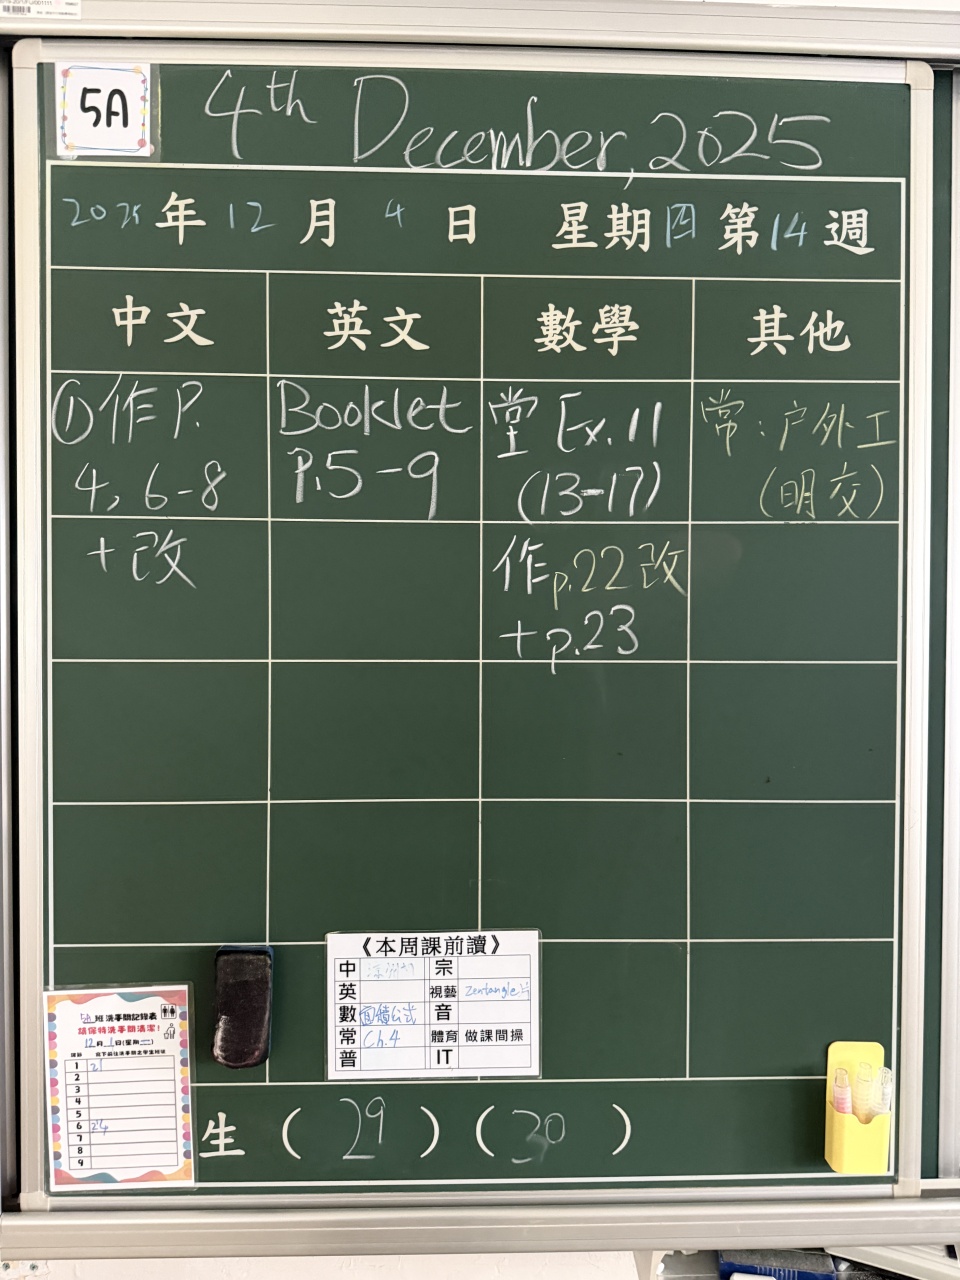 5A
4th December, 2025
2025年12月4日 星期四 第14週
中文 英文 數學 其他
①作 P.
4, 6-8
+改
Booklet
P.5-9
堂 Ex.11
(13-17)
作p.22改
+p.23
常:户外工
(明交)
《本周課前讀》
中 宗
英 視藝 Zentangle
數 面積公式 音
常 Ch.4 體育 做課間操
普 IT
5A班洗手間記錄表
請保持洗手間清潔!
12月1日(星期二)
1 21
2
3
4
5
6 24
7
8
9
生(29)(30)